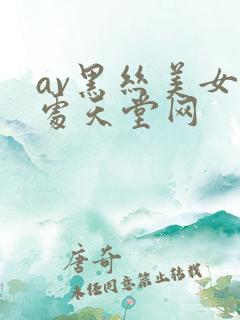 av黑丝美女
处天堂网
唐奇
未经同意禁止转载